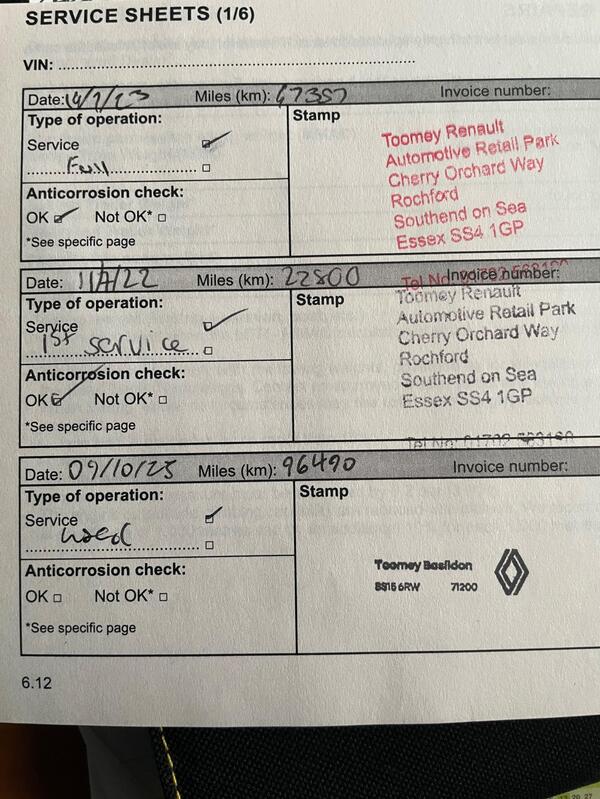 SERVICE SHEETS (1/6)
VIN:
Date: 14/7/23 Miles (km): 67357 Invoice number:
Type of operation:
Stamp
Service
Full
Anticorrosion check:
OK Not OK*
*See specific page
Toomey Renault
Automotive Retail Park
Cherry Orchard Way
Rochford
Southend on Sea
Essex SS4 1GP
Tel No:
Date: 11/7/22 Miles (km): 22800 Invoice number:
Type of operation:
Stamp
Service
1st service
Anticorrosion check:
OK Not OK*
*See specific page
Toomey Renault
Automotive Retail Park
Cherry Orchard Way
Rochford
Southend on Sea
Essex SS4 1GP
Tel No:
Date: 09/10/25 Miles (km): 96490 Invoice number:
Type of operation:
Stamp
Service
used
Anticorrosion check:
OK Not OK*
*See specific page
Toomey Basildon
SS15 6RW 71200
6.12